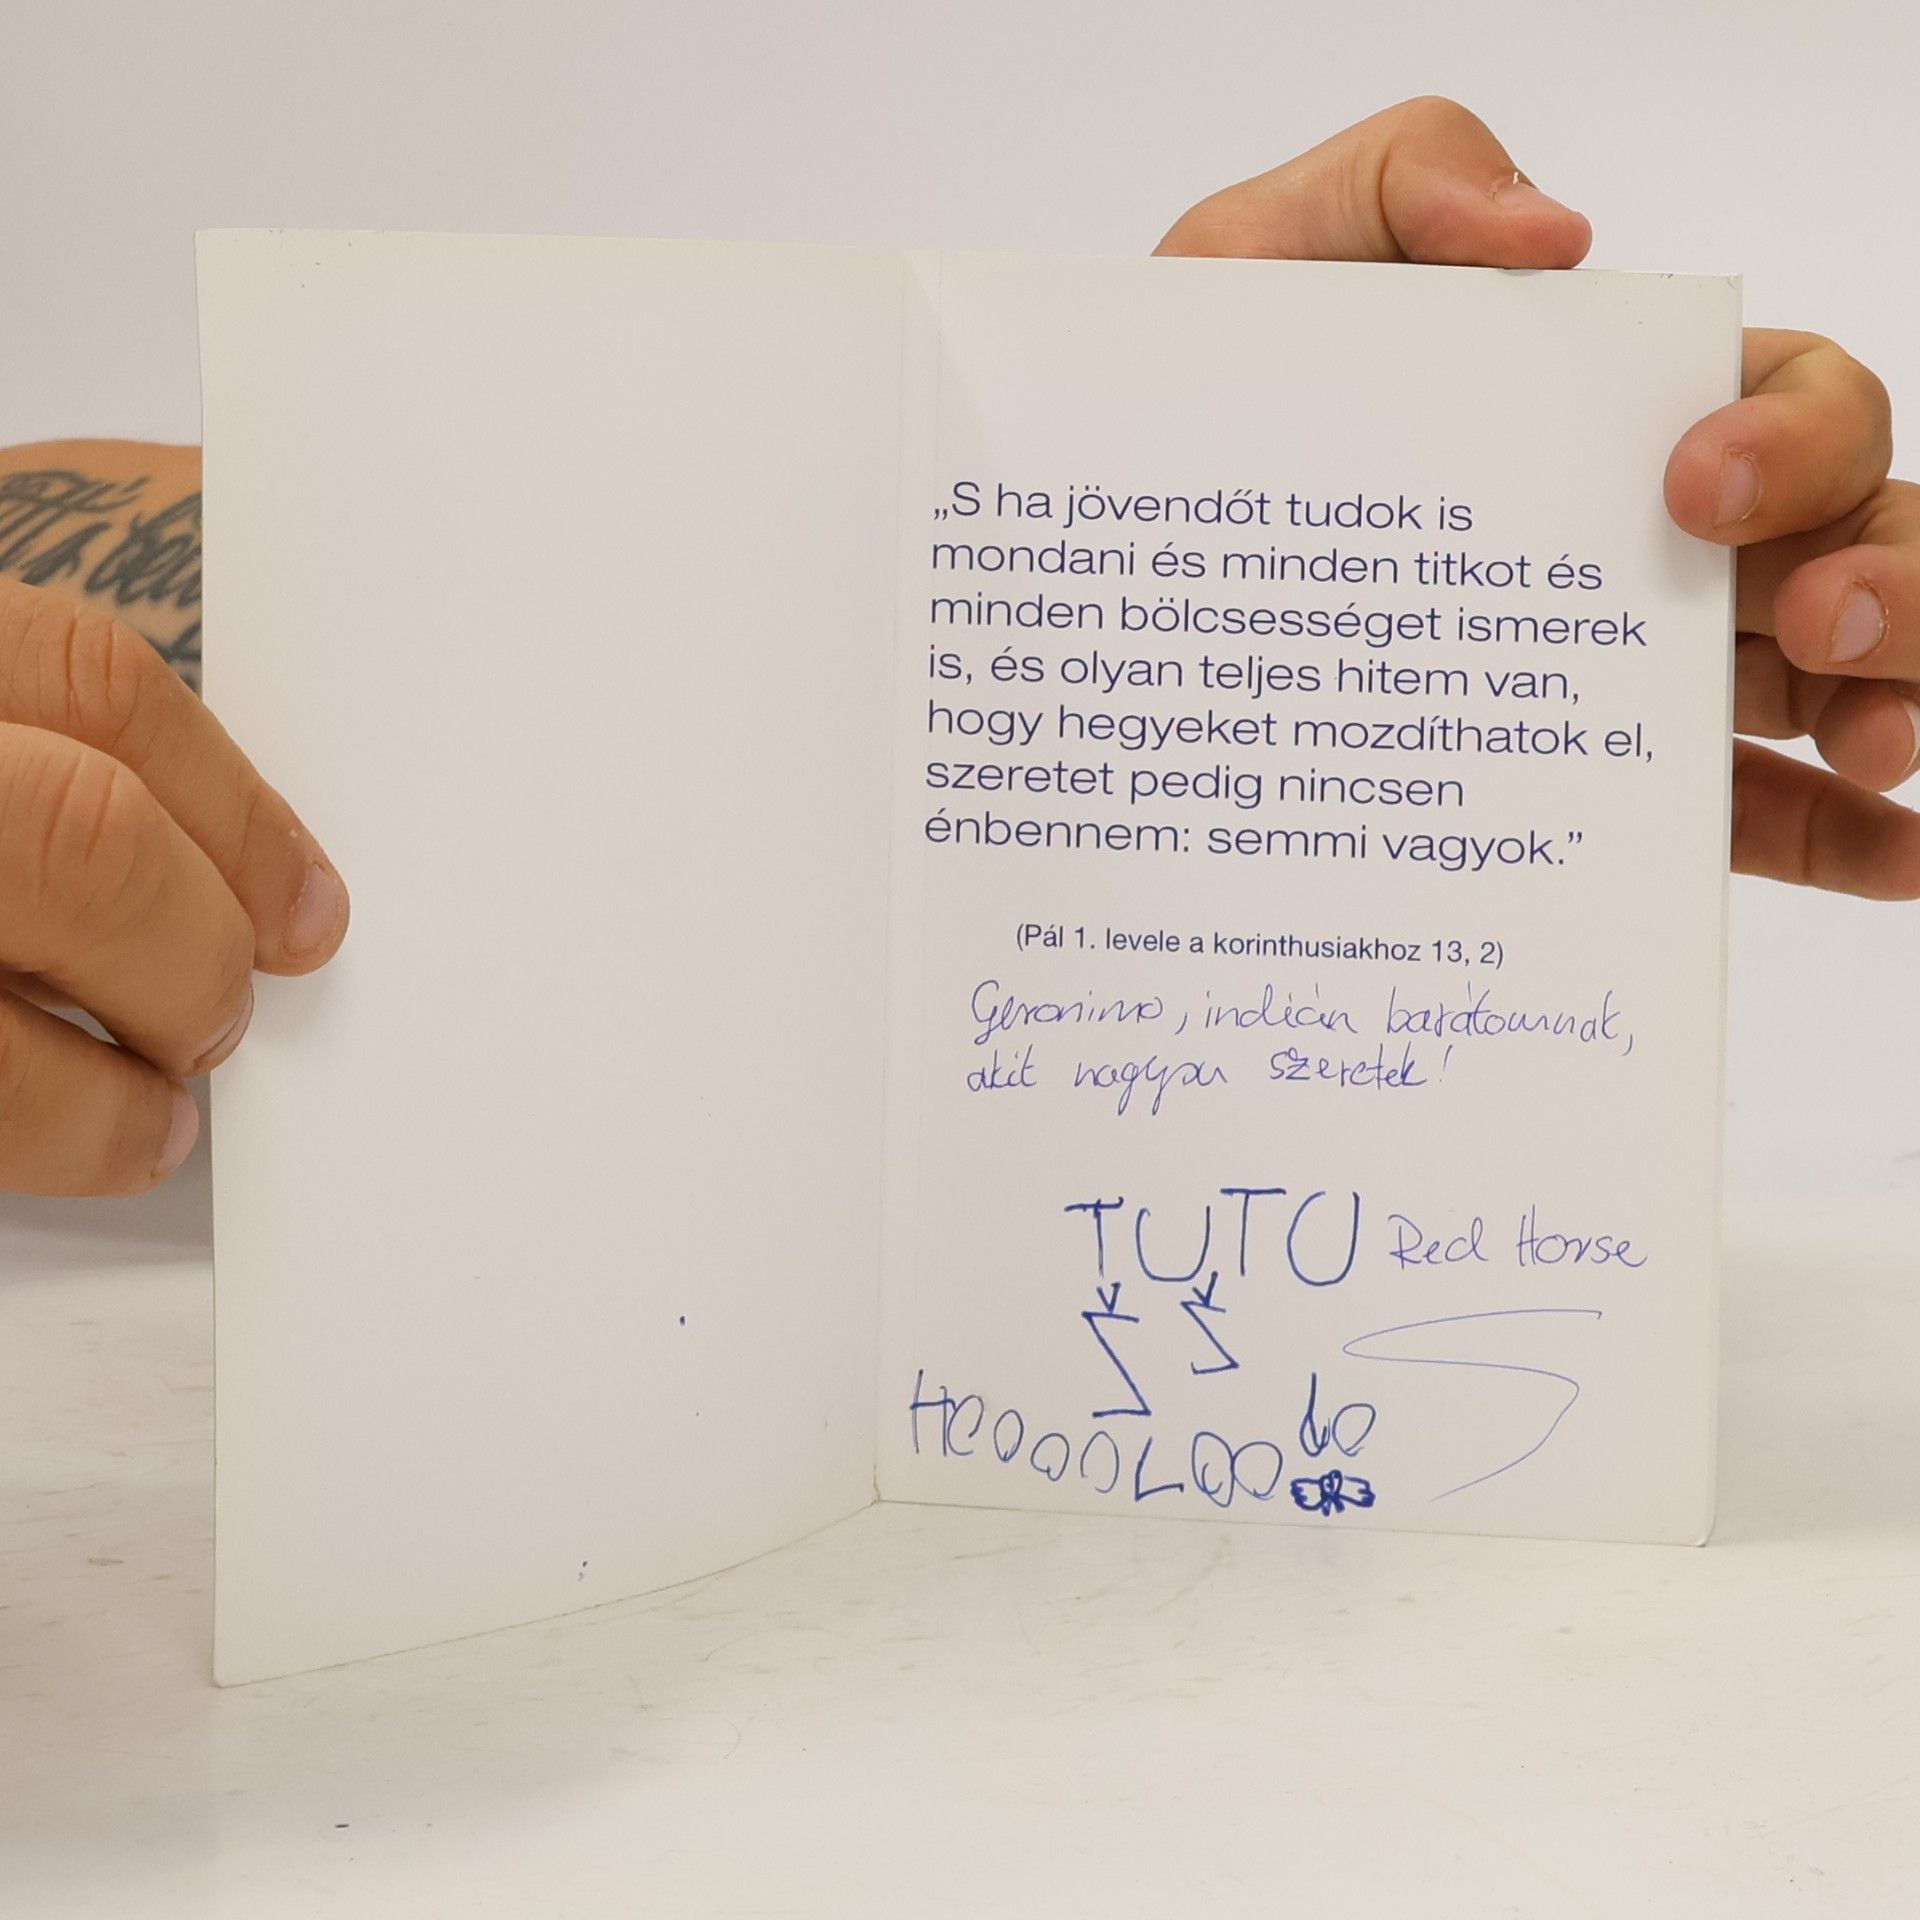 „S ha jövendőt tudok is
mondani és minden titkot és
minden bölcsességet ismerek
is, és olyan teljes hitem van,
hogy hegyeket mozdíthatok el,
szeretet pedig nincsen
énbennem: semmi vagyok.”
(Pál 1. levele a korinthusiakhoz 13, 2)
Geronimo, indián barátomnak,
akit nagyon szeretek!
TUTU Red Horse